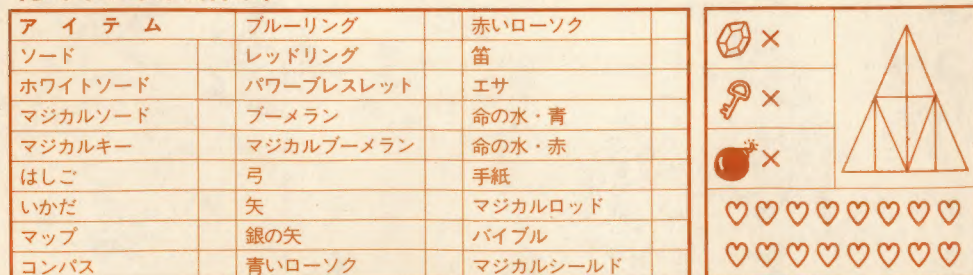 アイテム
ブルーリング
赤いローソク
ソード
レッドリング
笛
ホワイトソード
パワーブレスレット
エサ
マジカルソード
ブーメラン
命の水・青
マジカルキー
マジカルブーメラン
命の水・赤
はしご
弓
手紙
いかだ
矢
マジカルロッド
マップ
銀の矢
バイブル
コンパス
青いローソク
マジカルシールド
×
×
×